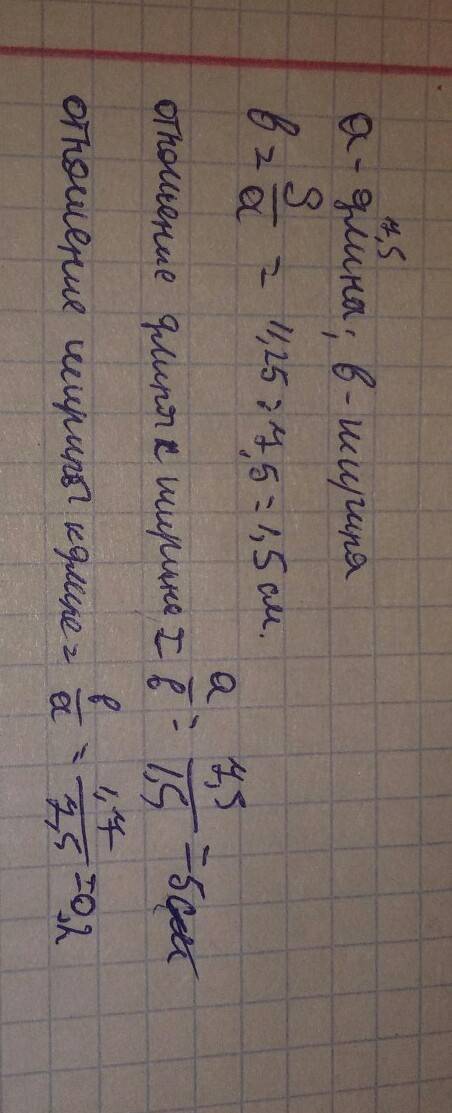 7,5
a - длина, в - ширина
в = S/a = 11,25 : 7,5 = 1,5 см.
отношение длины к ширине = a/в = 7,5/1,5 = 5 см
отношение ширины к длине = в/a = 1,7/7,5 = 0,2